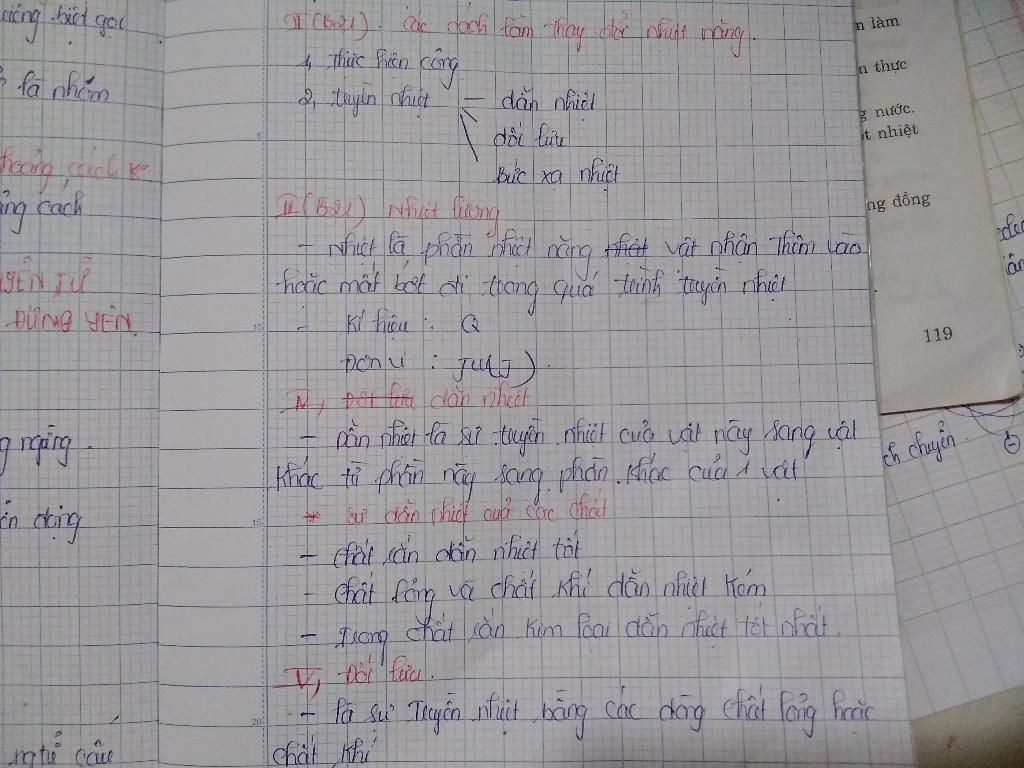 riêng biệt gọi
là nhóm
khoảng cách
ng cách
YÊN TỬ
ĐỨNG YÊN
g ngừng
ển động
nguyên tử cấu
II (B21). Các cách làm thay đổi nhiệt năng.
1, thực hiện công
2, truyền nhiệt — dẫn nhiệt
đối lưu
bức xạ nhiệt
III (B21) Nhiệt lượng
- Nhiệt là phần nhiệt năng vật nhận thêm vào
hoặc mất bớt đi trong quá trình truyền nhiệt
- Kí hiệu : Q
Đơn vị : Jun(J).
IV, dẫn nhiệt
- Dẫn nhiệt là sự truyền nhiệt của vật này sang vật
khác từ phần này sang phần khác của 1 vật
* sự dẫn nhiệt của các chất
- chất rắn dẫn nhiệt tốt
- chất lỏng và chất khí dẫn nhiệt kém
- Trong chất rắn kim loại dẫn nhiệt tốt nhất.
V, Đối lưu.
- là sự Truyền nhiệt bằng các dòng chất lỏng hoặc
chất khí
n làm
n thực
g nước.
t nhiệt
ng đồng
119
ch chuyển.